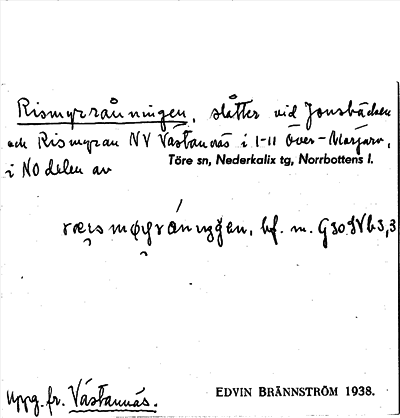 Rismyrråningen, slåtter vid Jonsbäcken
och Rismyran NV Västannäs i 1-11 Över-Morjärv,
i NO delen av Töre sn, Nederkalix tg, Norrbottens l.
bf. m. G30
Uppg. fr. Västannäs. EDVIN BRÄNNSTRÖM 1938.